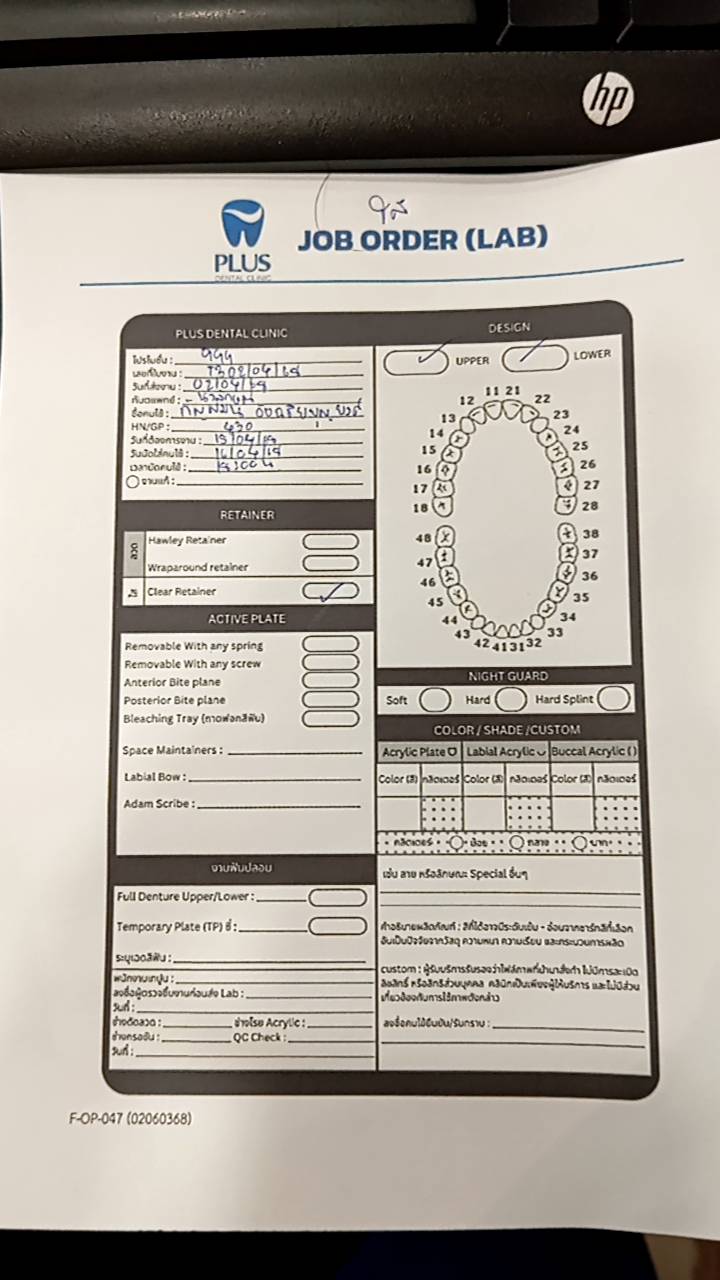 hp
ใส
PLUS
DENTAL CLINIC
JOB ORDER (LAB)
PLUS DENTAL CLINIC
โปรโมชั่น : 999
เลขที่ใบงาน : T302/04/69
วันที่ส่งงาน : 02/04/69
ทันตแพทย์ :
ชื่อคนไข้ :
HN/GP : 430
วันที่ต้องการงาน : 15/04/69
วันนัดใส่คนไข้ : 16/04/69
เวลานัดคนไข้ :
งานแก้ :
RETAINER
ลวด
Hawley Retainer
Wraparound retainer
ใส
Clear Retainer
ACTIVE PLATE
Removable With any spring
Removable With any screw
Anterior Bite plane
Posterior Bite plane
Bleaching Tray (ถาดฟอกสีฟัน)
Space Maintainers :
Labial Bow :
Adam Scribe :
งานฟันปลอม
Full Denture Upper/Lower :
Temporary Plate (TP) ซี่ :
ระบุเฉดสีฟัน :
พนักงานเทปูน :
ลงชื่อผู้ตรวจชิ้นงานก่อนส่ง Lab :
วันที่ :
ช่างดัดลวด : ช่างโรย Acrylic :
ช่างกรอขัด : QC Check :
วันที่ :
DESIGN
UPPER LOWER
11 21
12 22
13 23
14 24
15 25
16 26
17 27
18 28
48 38
47 37
46 36
45 35
44 34
43 33
42 41 31 32
NIGHT GUARD
Soft Hard Hard Splint
COLOR / SHADE /CUSTOM
Acrylic Plate Labial Acrylic Buccal Acrylic ( )
Color (สี) กลิตเตอร์ Color (สี) กลิตเตอร์ Color (สี) กลิตเตอร์
กลิตเตอร์ น้อย กลาง มาก
เช่น ลาย หรือลักษณะ Special อื่นๆ
คำอธิบายผลิตภัณฑ์ : สีที่ได้อาจมีระดับเข้ม - อ่อนจากชาร์ทสีที่เลือก
อันเป็นปัจจัยจากวัสดุ ความหนา ความเรียบ และกระบวนการผลิต
custom : ผู้รับบริการรับรองว่าไฟล์ภาพที่นำมาสั่งทำ ไม่มีการละเมิด
ลิขสิทธิ์ หรือสิทธิส่วนบุคคล คลินิกเป็นเพียงผู้ให้บริการ และไม่มีส่วน
เกี่ยวข้องกับการใช้ภาพดังกล่าว
ลงชื่อคนไข้ยืนยัน/รับทราบ :
F-OP-047 (02060368)